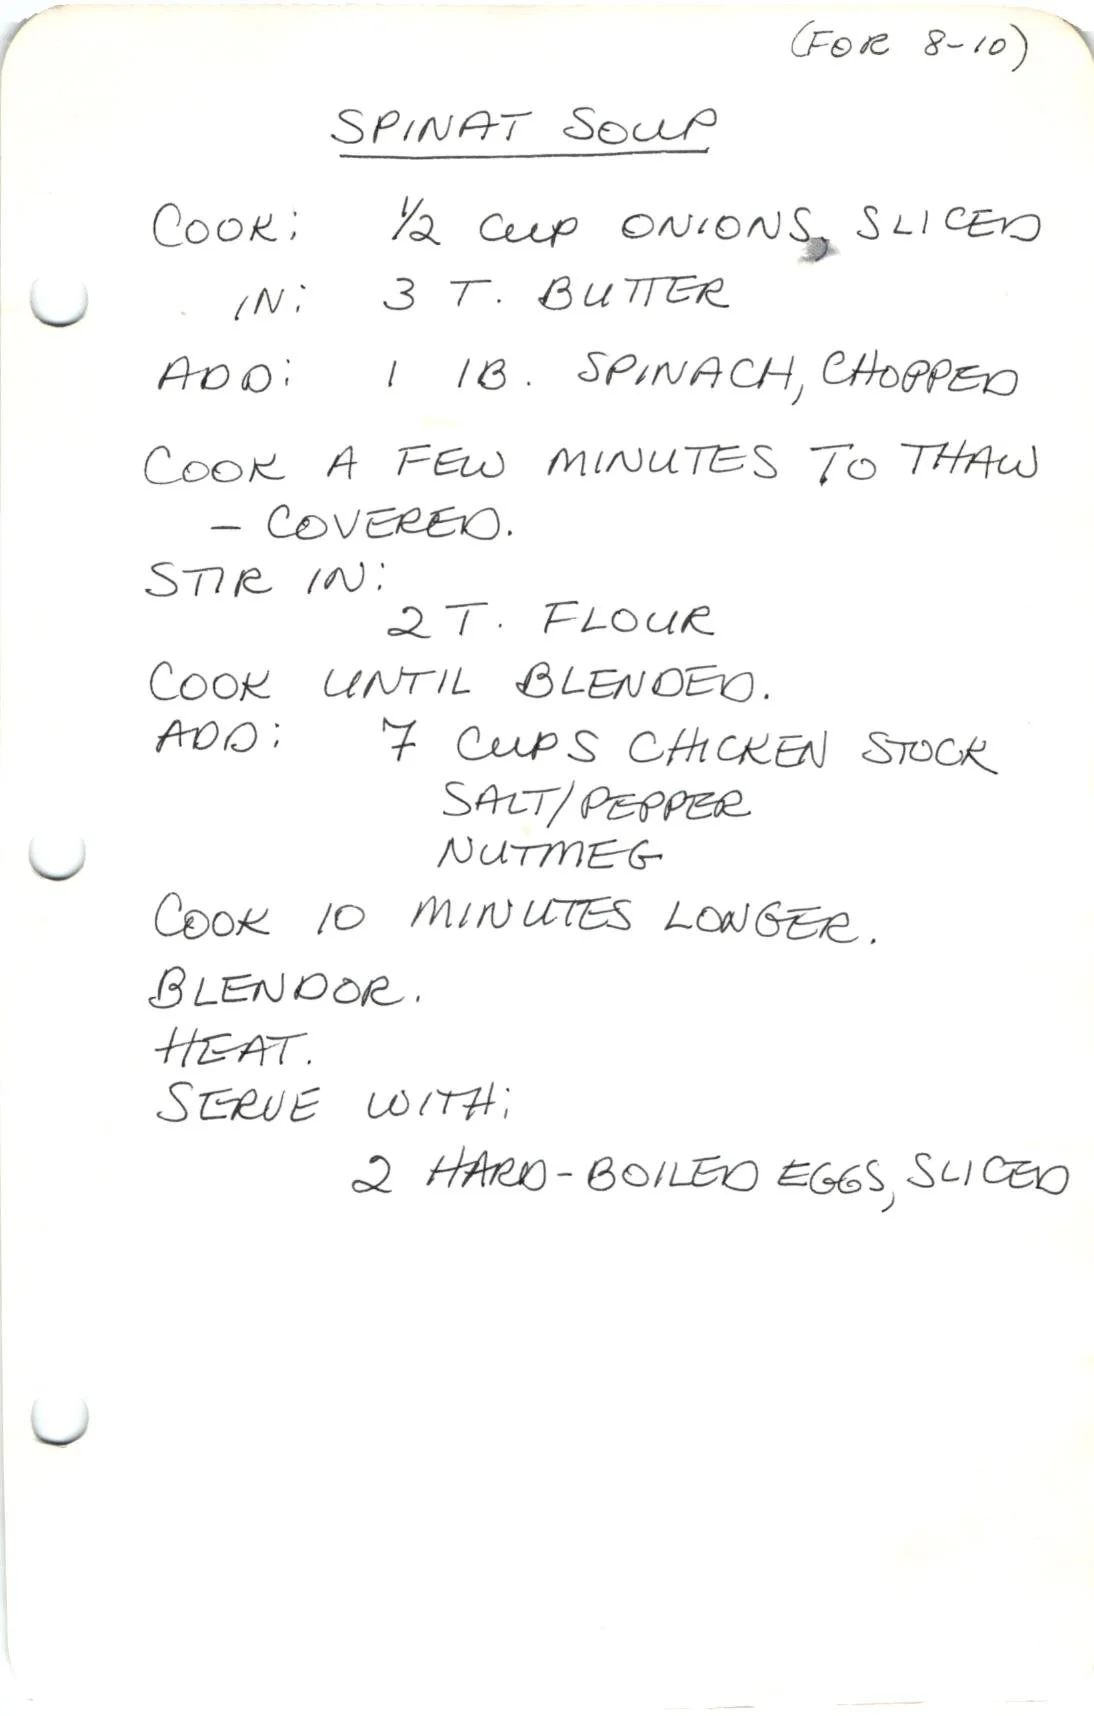 (FOR 8-10)
SPINAT SOUP
COOK: ½ CUP ONIONS, SLICED
IN: 3 T. BUTTER
ADD: 1 lB. SPINACH, CHOPPED
COOK A FEW MINUTES TO THAW
- COVERED.
STIR IN:
2 T. FLOUR
COOK UNTIL BLENDED.
ADD: 7 CUPS CHICKEN STOCK
SALT/PEPPER
NUTMEG
COOK 10 MINUTES LONGER.
BLENDOR.
HEAT.
SERVE WITH:
2 HARD-BOILED EGGS, SLICED